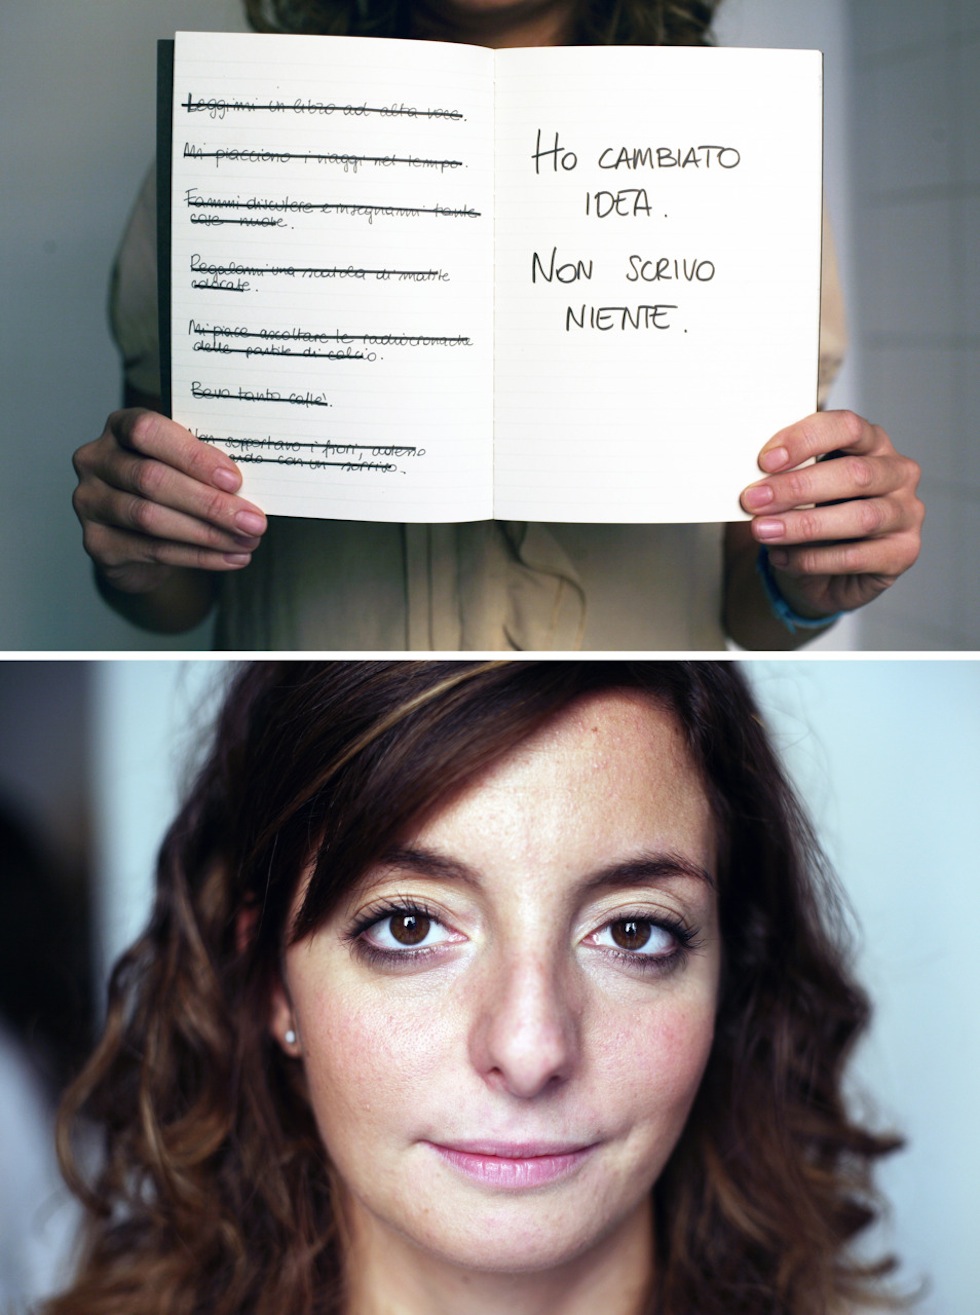 Leggimi un libro ad alta voce.
Mi piacciono i viaggi nel tempo.
Fammi discutere e insegnami tante
cose nuove.
Regalami una scatola di matite
colorate.
Mi piace ascoltare le radiocronache
delle partite di calcio.
Bevo tanto caffè.
Non sopportavo i fiori, adesso
con un sorriso.
Ho CAMBIATO
IDEA.
NON SCRIVO
NIENTE.